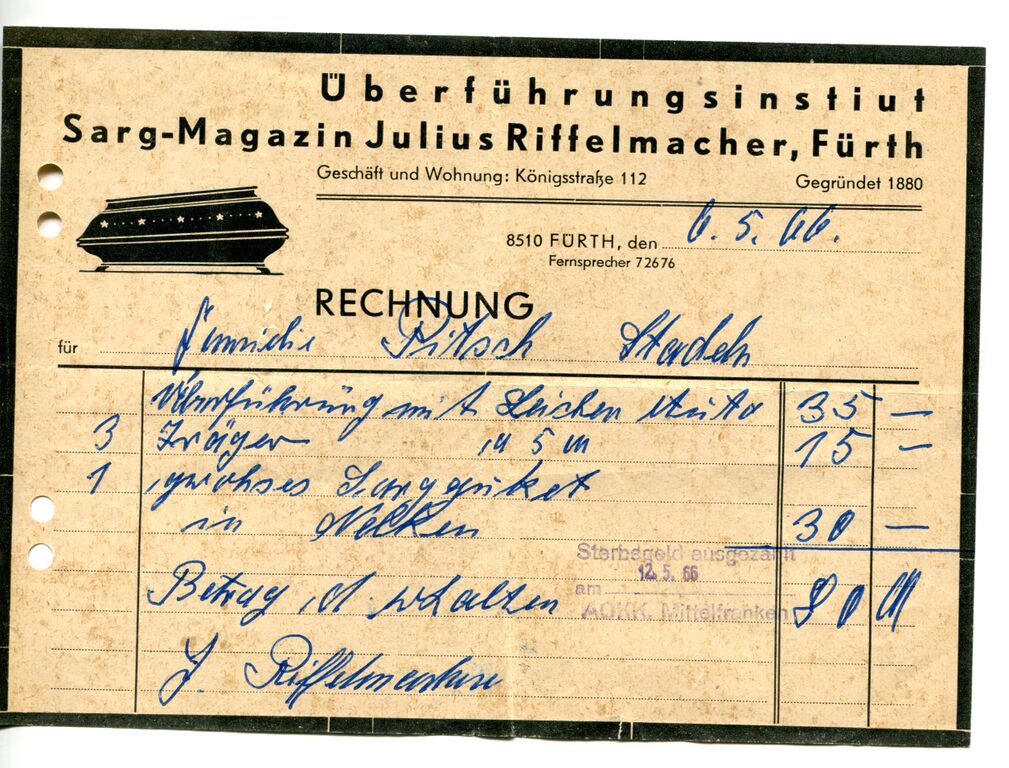 Überführungsinstiut
Sarg-Magazin Julius Riffelmacher, Fürth
Geschäft und Wohnung: Königsstraße 112 Gegründet 1880
8510 FÜRTH, den 6. 5. 66.
Fernsprecher 72676
RECHNUNG
für Familie Pitsch Stadeln
Überführung mit Leichen Auto 35 —
3 Träger a 5 M 15 —
1 grohses Sargguket
in Nelken 30 —
Sterbegeld ausgezahlt
12. 5. 66
am
AOKK. Mittelfranken
Betrag erhalten 80 M
J. Riffelmacher